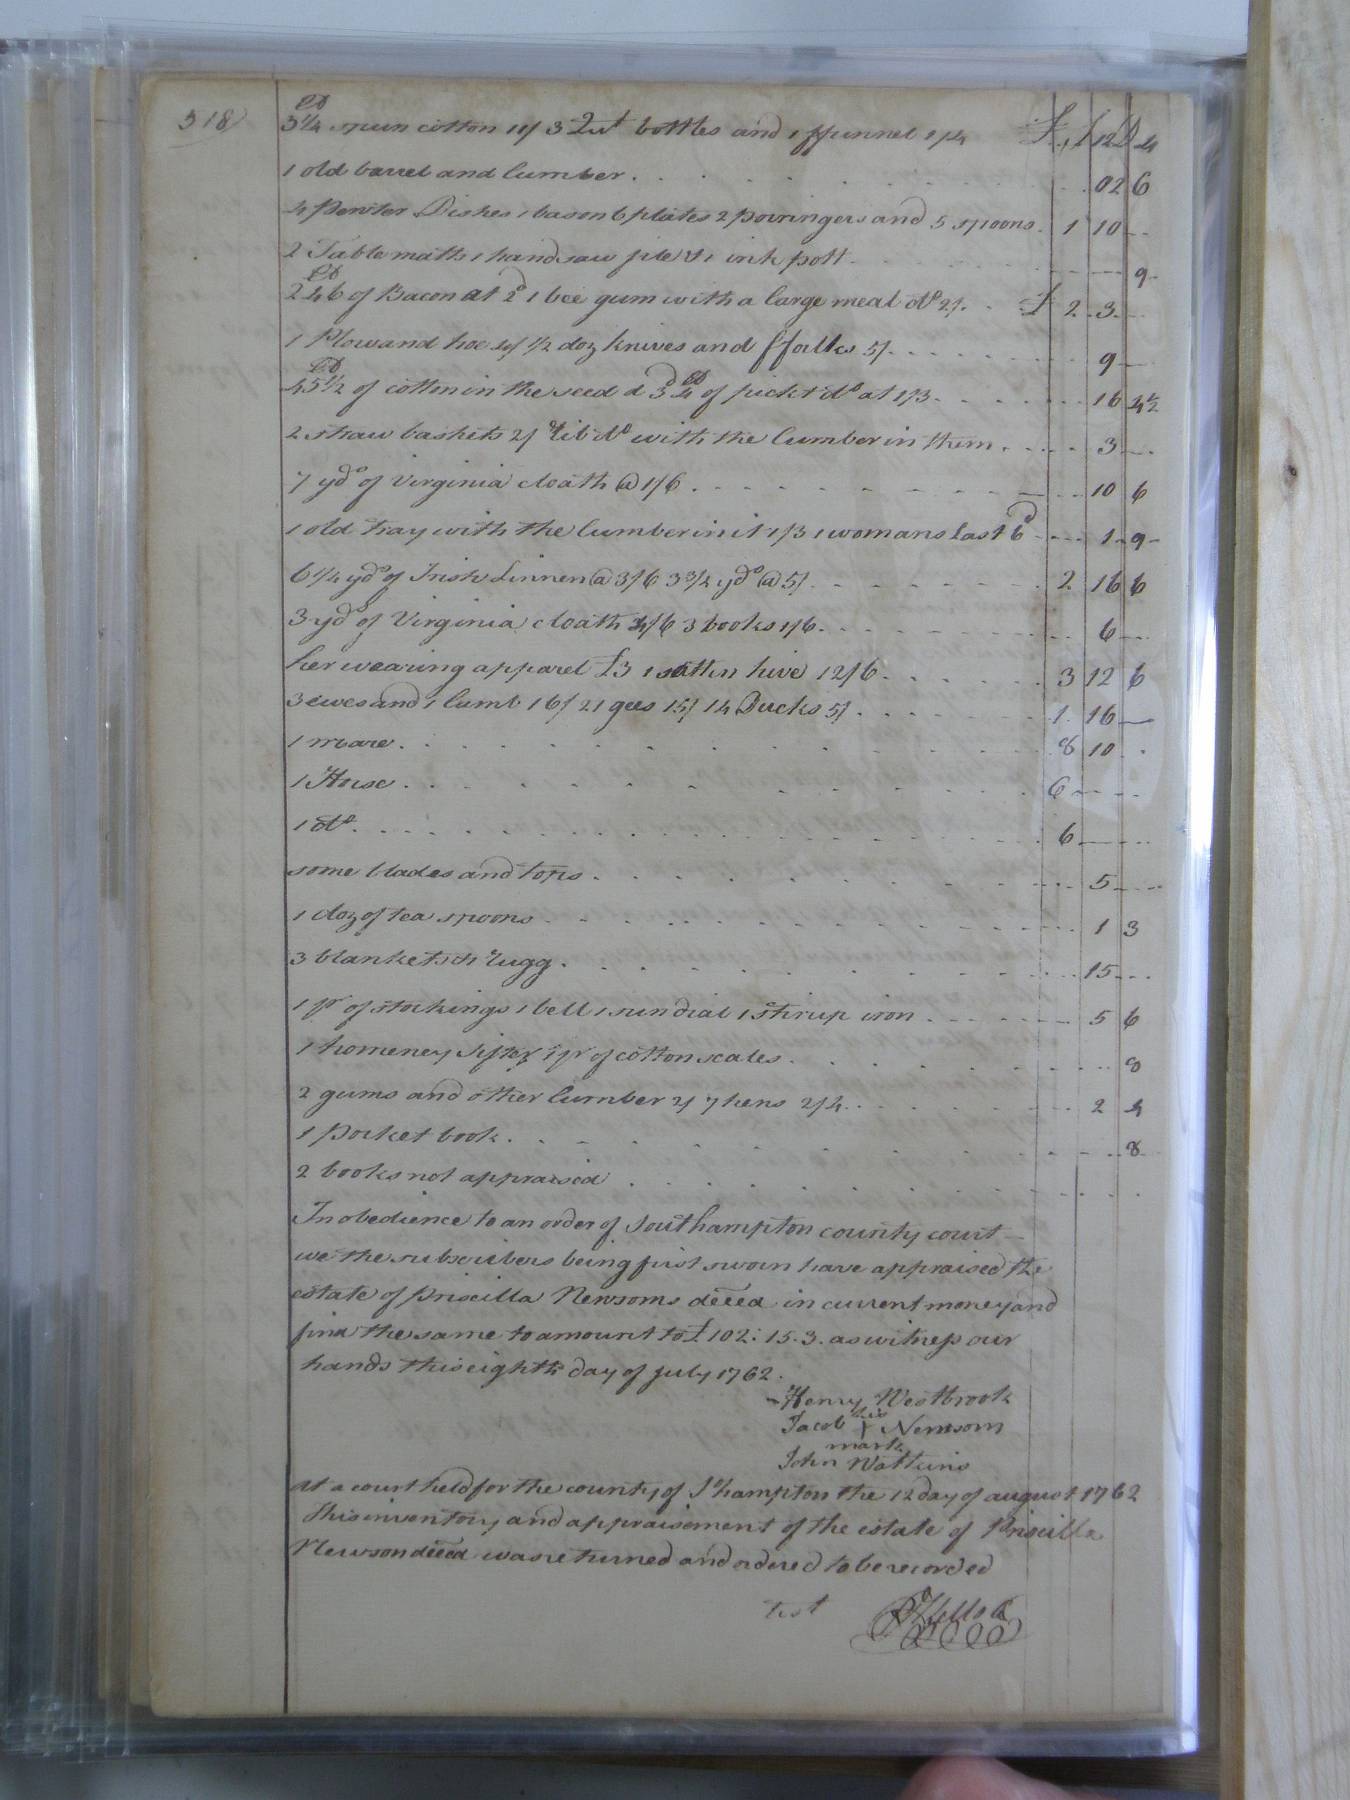 318
3 1/4 lb spun cotton 11/ 3 Qut bottles and 1 ffunnel 1/4 £ 12 4
1 old barrel and lumber 02 6
4 Pewter Dishes 1 bason 6 plates 2 porringers and 5 spoons 1 10
2 Table maths 1 handsaw file & 1 ink pott 9
246 lb of Bacon at 2d 1 bee gum with a large meal do 2/ £ 2 3
1 Plow and hoe 4/ 1/2 doz knives and fforks 5/ 9
45 1/2 lb of cotton in the seed @ 3d 4 lb of pickt do at 1/3 16 4 1/2
2 straw baskets 2/ 1 rib do with the lumber in them 3
7 yds of Virginia cloath @ 1/6 10 6
1 old tray with the lumber in it 1/3 1 womans last 6d 1 9
6 1/4 yds of Irish Linnen @ 3/6 3 3/4 yds @ 5/ 2 16 6
3 yds of Virginia cloath 4/6 3 books 1/6 6
her wearing apparel £3 1 sattin hive 12/6 3 12 6
3 ewes and 1 lamb 16/ 21 gees 15/ 14 Ducks 5/ 1 16
1 mare 8 10
1 Horse 6
1 do 6
some blades and tops 5
1 doz of tea spoons 1 3
3 blankets & 1 rugg 15
1 pr of stockings 1 bell 1 sun dial 1 stirrup iron 5 6
1 homeney sifter 1 pr of cotton scales 8
2 gums and other lumber 2/ 7 hens 2/4 2 4
1 pocket book 8
2 books not appraised
In obedience to an order of Southampton county court
we the subscribers being first sworn have appraised the
estate of Priscilla Newsoms deceed in current money and
find the same to amount to £102:15.3. as witness our
hands this eighth day of July 1762.
Henry Westbrook
his
Jacob + Newsom
mark
John Watkins
At a court held for the county of So hampton the 12 day of august 1762
This inventory and appraisement of the estate of Priscilla
Newsom deceed was returned and ordered to be recorded
test